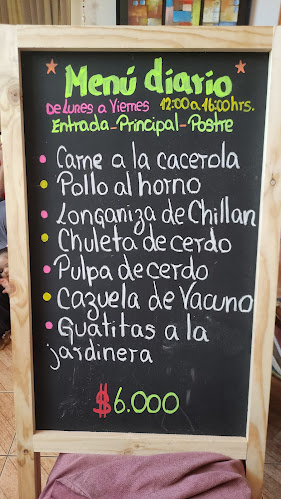 Menú diario
De Lunes a Viernes 12:00 a 16:00 hrs.
Entrada - Principal - Postre
Carne a la cacerola
Pollo al horno
Longaniza de Chillan
Chuleta de cerdo
Pulpa de cerdo
Cazuela de Vacuno
Guatitas a la
jardinera
$6.000